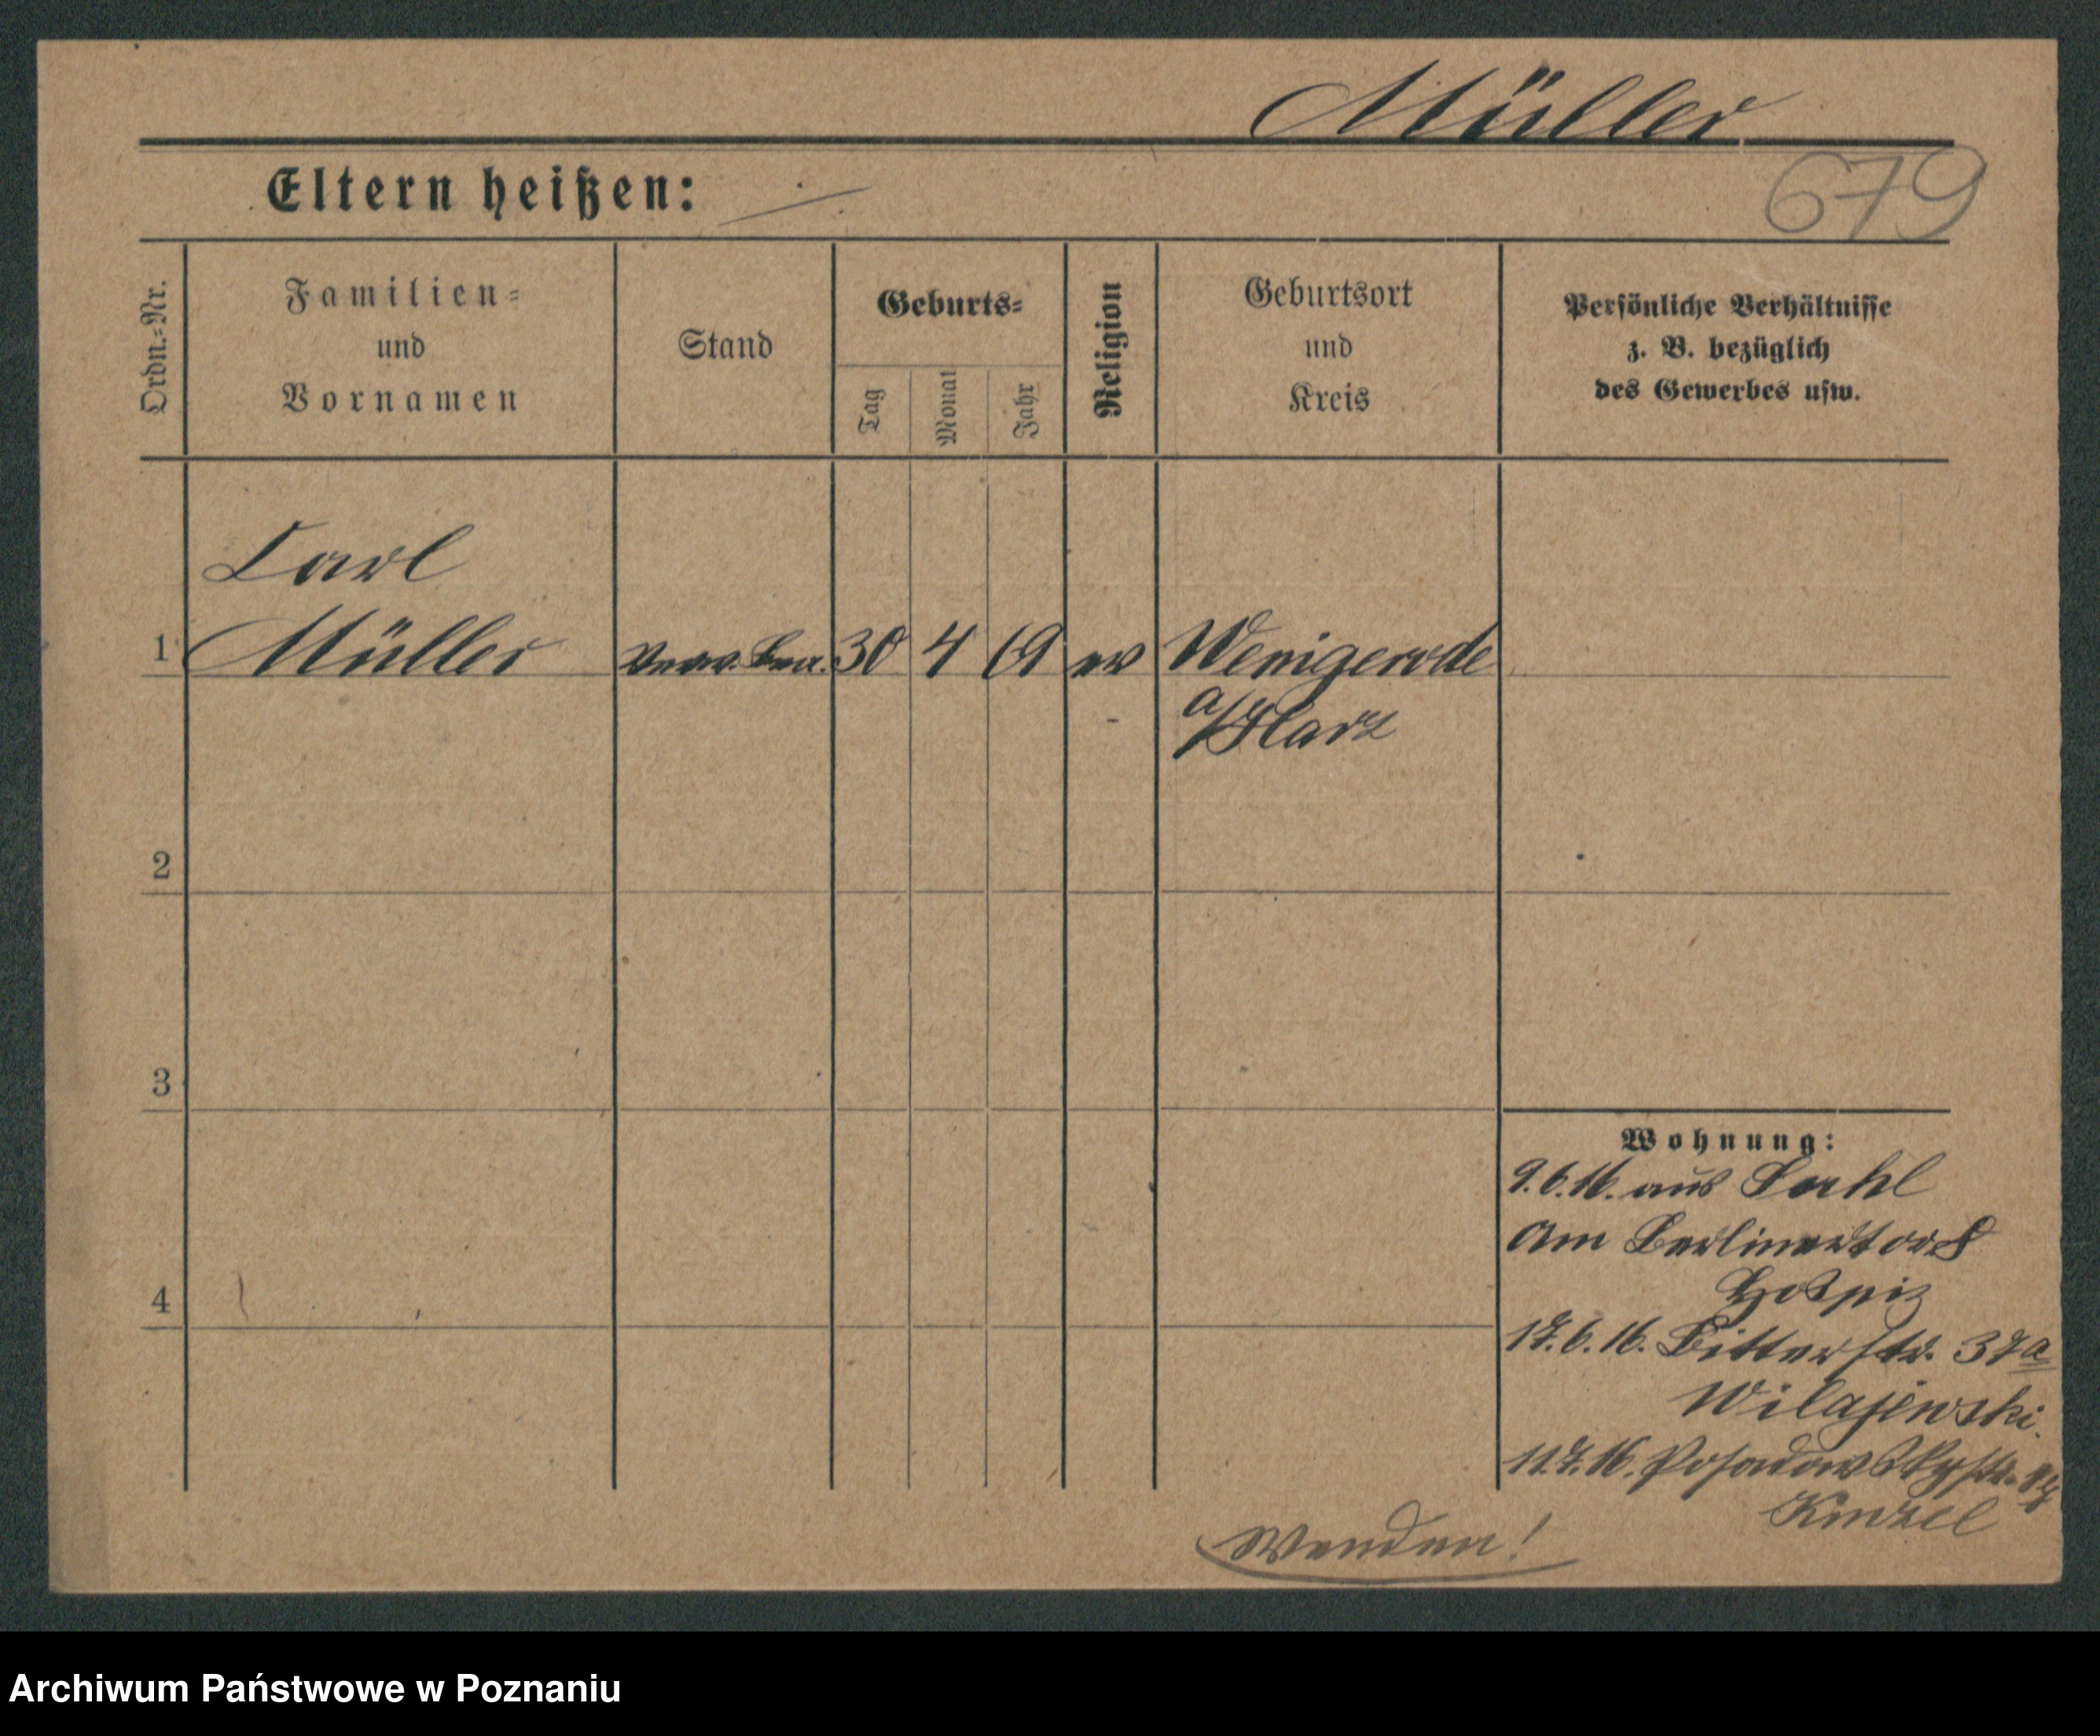 Müller
Eltern heißen: ÷
679
Ordn.=Nr.
Familien=
und
Vornamen
Stand
Geburts=
Tag
Monat
Jahr
Religion
Geburtsort
und
Kreis
Persönliche Verhältnisse
z. B. bezüglich
des Gewerbes usw.
Carl
1 Müller 30 4 69 ev Wenigerode
a/Harz
2
3
4
Wohnung:
9.6.16. aus
Am Berlinertor 8
Hospiz
17.6.16. Bitterstr. 37a
Wilajewski.
11.7.16. Posadowskystr.
Kinzel
Wenden!
Archiwum Państwowe w Poznaniu